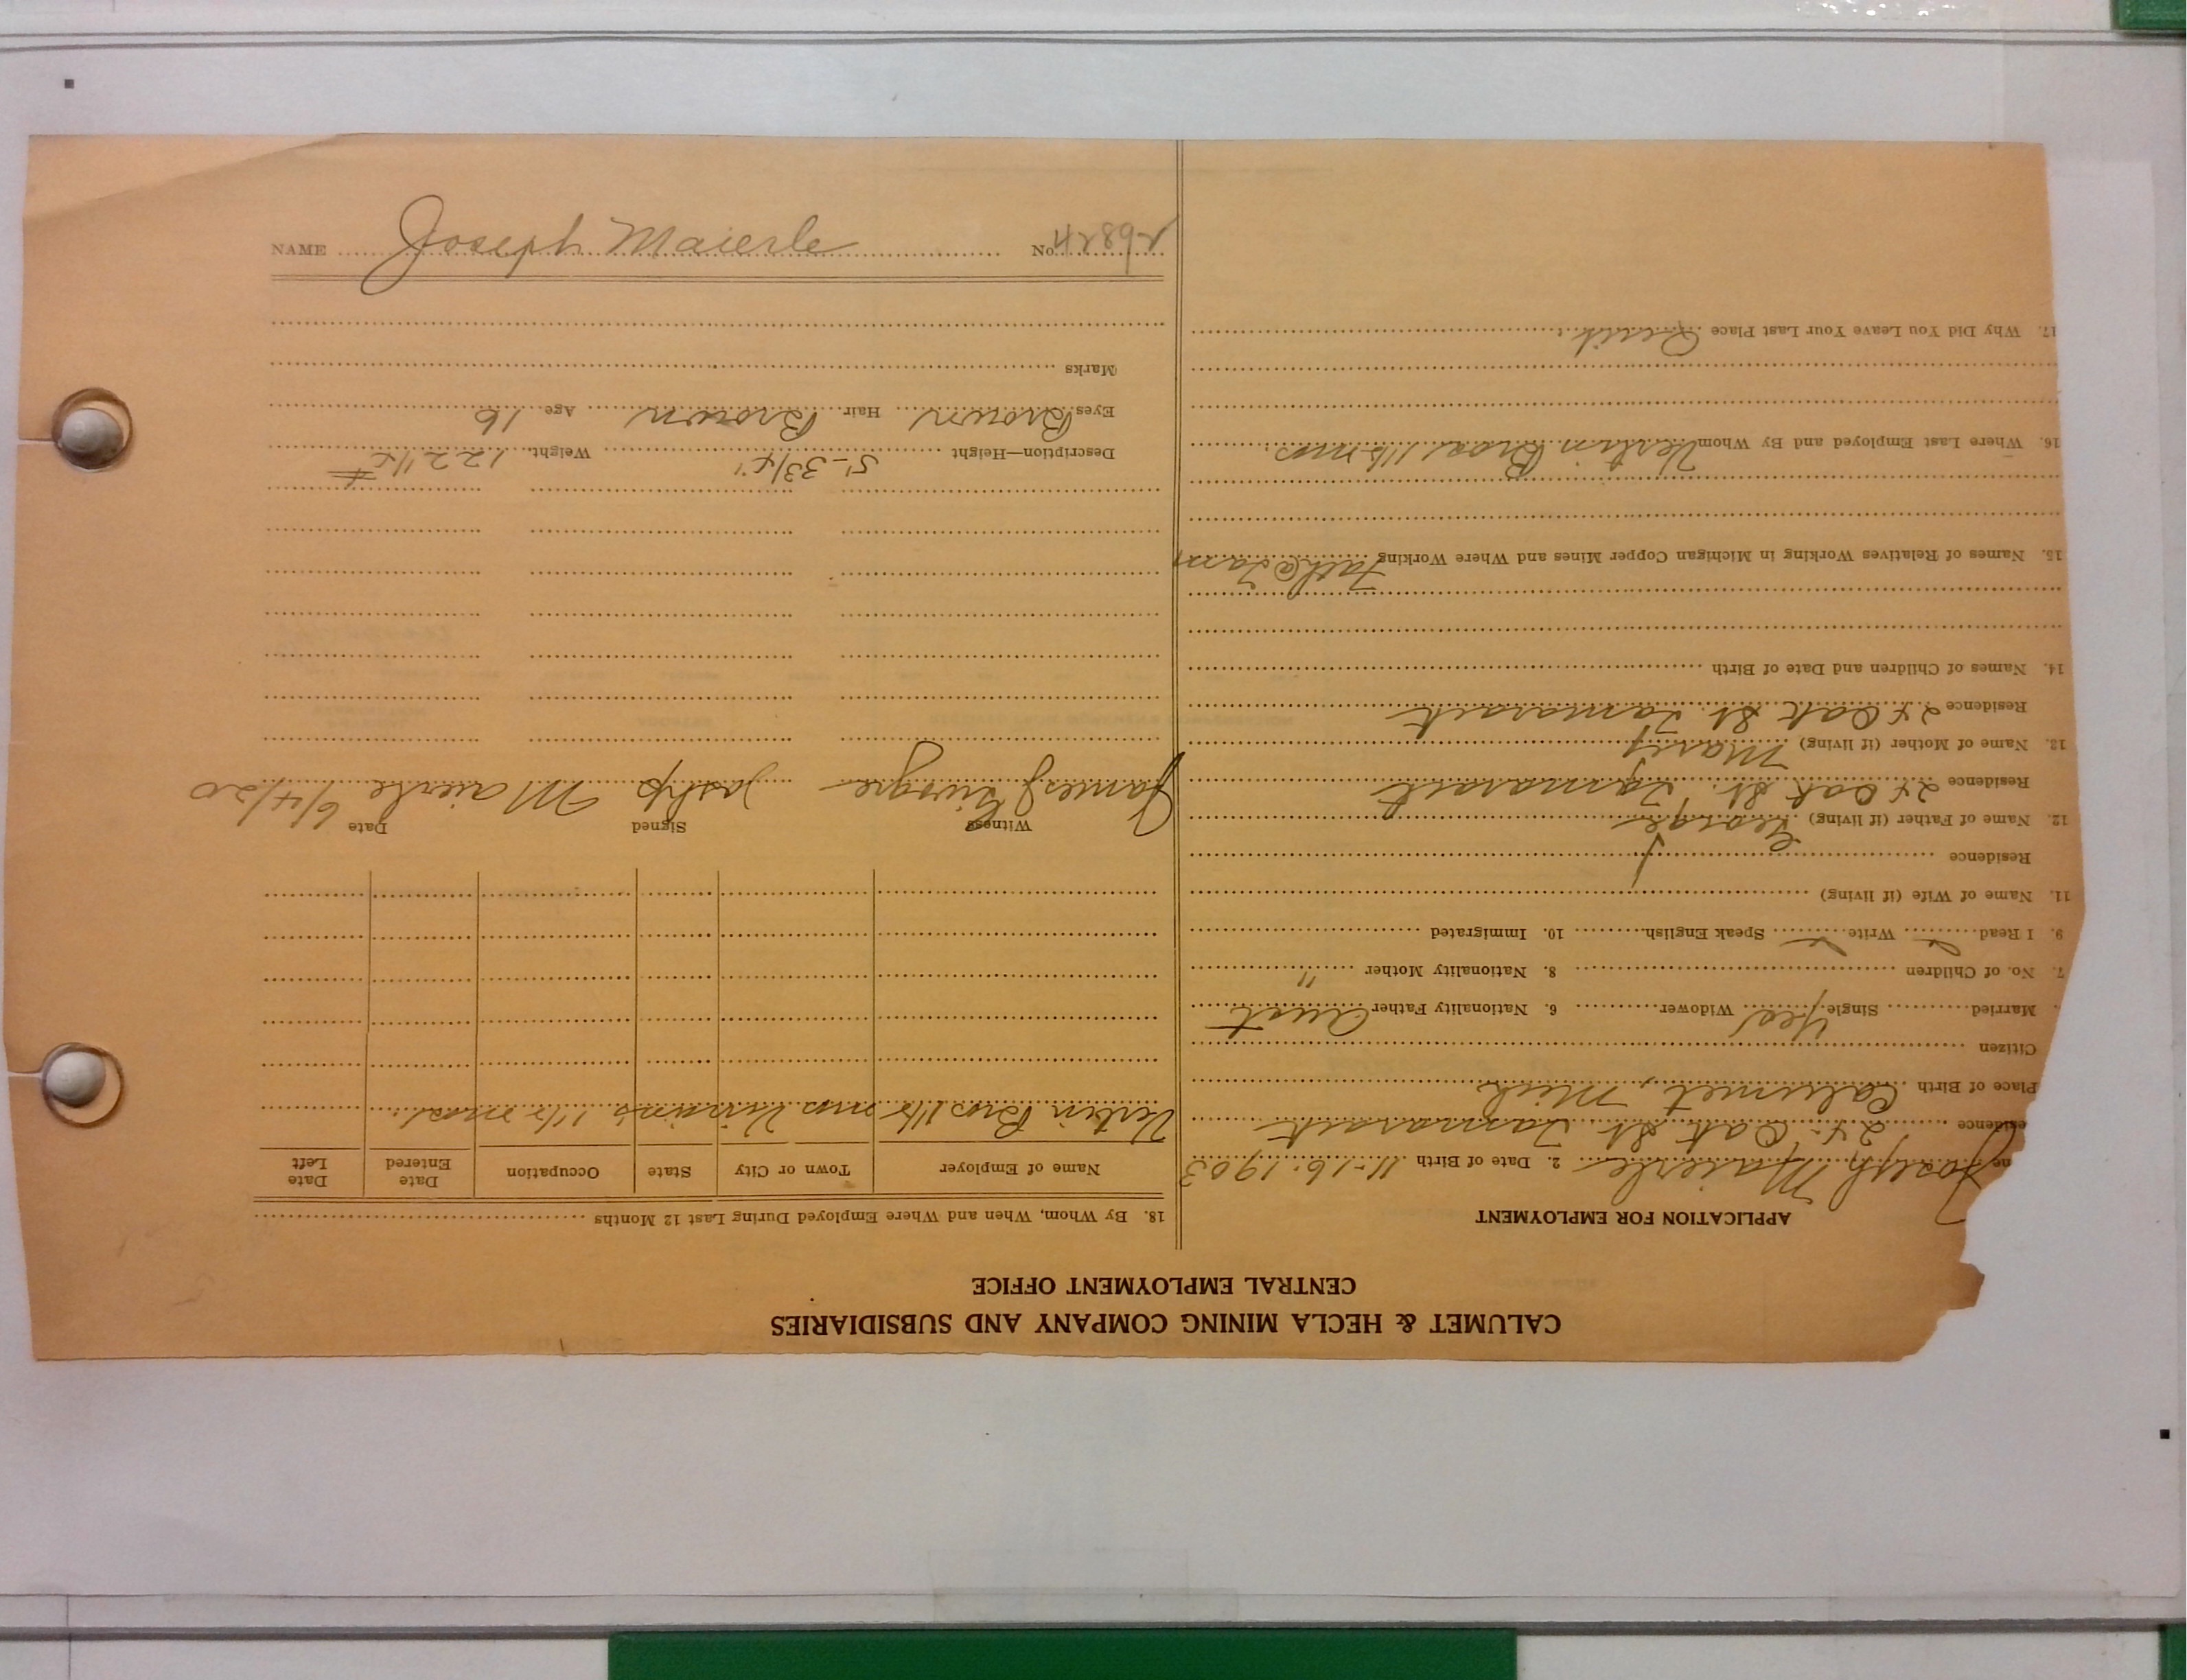 CALUMET & HECLA MINING COMPANY AND SUBSIDIARIES
CENTRAL EMPLOYMENT OFFICE
APPLICATION FOR EMPLOYMENT
ne Joseph Maierle 2. Date of Birth 11-16-1903
esidence 24 Oak St. Tamarack
Place of Birth Calumet, Mich
Citizen
Married Single Yes Widower 6. Nationality Father Aust
7. No. of Children 8. Nationality Mother "
9. I Read Write Speak English 10. Immigrated
11. Name of Wife (if living)
Residence
12. Name of Father (if living) George
Residence 24 Oak St. Tamarack
13. Name of Mother (if living) Mary
Residence 24 Oak St. Tamarack
14. Names of Children and Date of Birth
15. Names of Relatives Working in Michigan Copper Mines and Where Working Fath @ Tam
16. Where Last Employed and By Whom Vertin Bros mos
17. Why Did You Leave Your Last Place Quit
18. By Whom, When and Where Employed During Last 12 Months
Name of Employer Town or City State Occupation Date Entered Date Left
Vertin Bros mos mos
Witness Signed Date
James Joship Maierle 6/4/20
Description—Height 5'-3 3/4" Weight 122 1/2 #
Eyes Brown Hair Brown Age 16
Marks
NAME Joseph Maierle No.